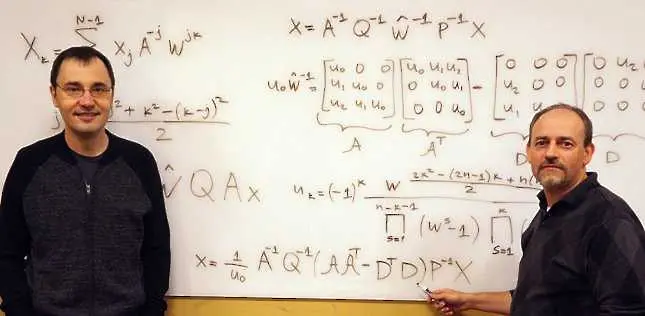 X_k = \sum^{N-1} x_j A^{-j} W^{jk}
X = A^{-1} Q^{-1} Ŵ^{-1} P^{-1} X
u_0 Ŵ^{-1} = [u_0 0 0; u_1 u_0 0; u_2 u_1 u_0] [u_0 u_1 u_2; 0 u_0 u_1; 0 0 u_0] - [0 0 0; u_2 0 0; u_1 0] [0 u_2; 0 0; 0 0]
A A^T D D
j )^2 + k^2 - (k-j)^2
2
Ŵ Q A x
u_k = (-1)^k W^{\frac{2k^2 - (2n-1)k + n(}{2}}
\prod_{s=1}^{n-k-1} (W^s - 1) \prod_{s=1}^{k} (
x = \frac{1}{u_0} A^{-1} Q^{-1} (A A^T - D^T D) P^{-1} X